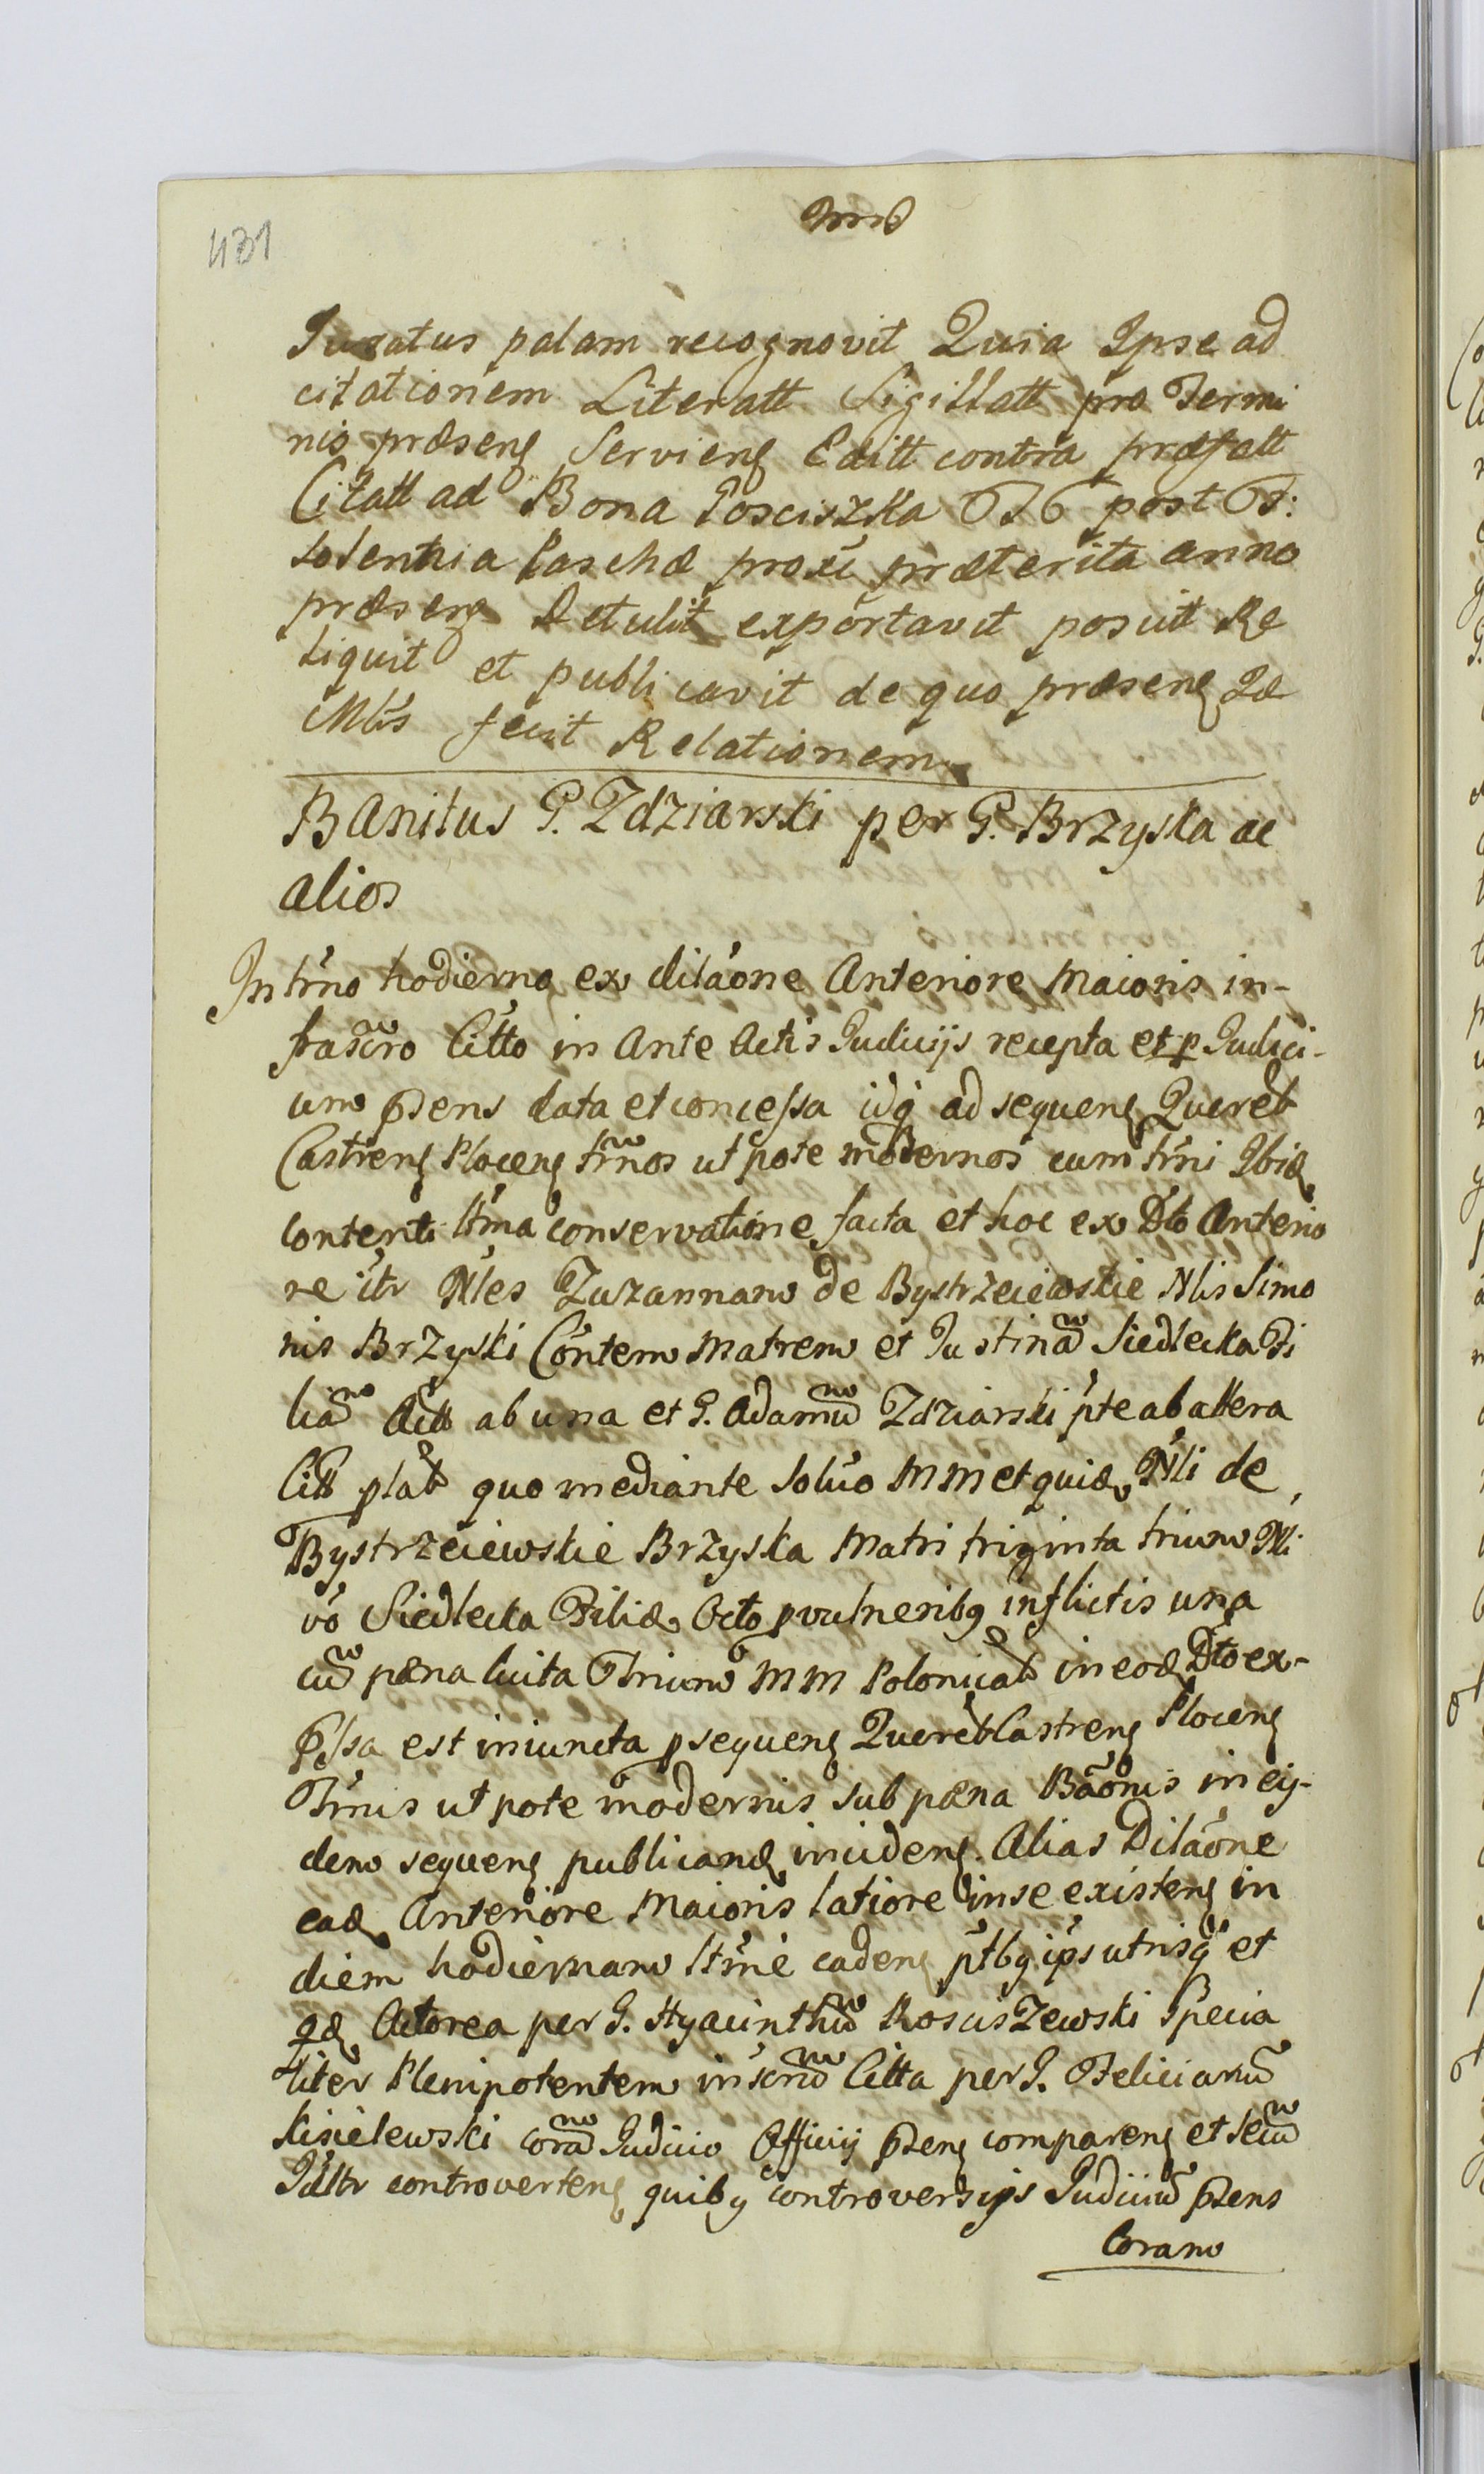 431
Juratus palam recognovit Quia Ipse ad
citationem Literatt Sigillatt pro Termi
nis præsenς Servienς Editt contra præfatt
Citatt ad Bona Posciszka post
solennia Paschæ proxi præterita anno
præsenς Detulit exportavit posuit Re
liquit et publicavit de quo præsenς
Mlis fecit Relationem
Banitus G. Zdziarski per G. Brzyska ac
alios
In trno hodierno ex dilaone Anteriore Maioris in-
frascro Citto in Ante Actis Judicijs recepta et p Judici-
um pzens data et concessa idq ad sequenς Quereb
Castrenς Plocenς trnos ut pote modernos cum trni Ibid
content ltma conservatione facta et hoc ex Dto Anterio
re itr Nles Zuzannam de Bystrzeiewskie Nlis Simo
nis Brzyski Contem Matrem et Justinam Siedlecka Fi
liam Actt ab una et G. Adamum Zdziarski pte ab altera
Citt plat quo mediante soluo MM et quidem Nli de
Bystrzeiewskie Brzyska Matri triginta trium Nli
vo Siedlecka Filiæ Octo p vulneribq inflictis una
cum pæna luita Trium MM Polonicat in eod Dto ex-
pssa est iniuncta p sequenς Quereb Castrenς Plocenς
Trnis ut pote modernis sub pæna Baonis in eis-
dem sequenς publicand incidenς. Alias Dilaone
ead Anteriore Maioris latiore in se existenς in
diem hodiernam ltme cadenς ptbq ips utrisq et
qd Actorea per G. Hyacinthum Rosciszewski Specia
liter Plenipotentem inscrum Citta per G. Felicianum
Kisielewski coram Judicio Officij pzenς comparenς et secum
Jdltr controvertenς quibq controversijs Judicium pzens
Coram